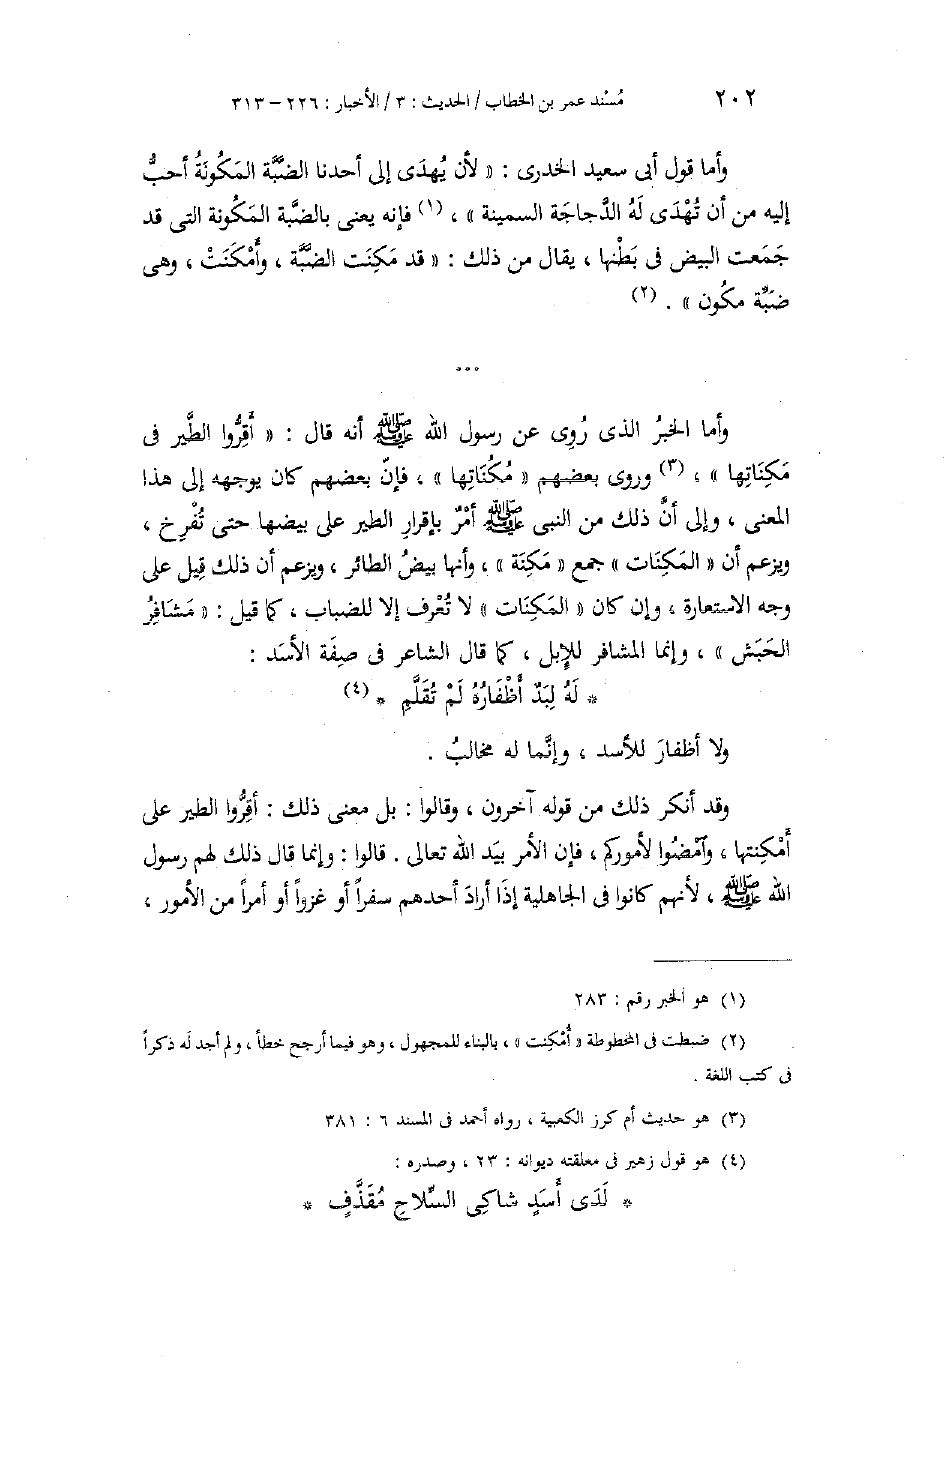 ٢٠٢ مُسْند عمر بن الخطاب / الحديث : ٣ / الأخبار : ٢٢٦ – ٣١٣
وأما قول أبى سعيد الخدرى : « لأن يُهدَى إلى أحدنا الضبَّة المَكُونَةُ أحبُّ
إليه من أن تُهْدَى لَهُ الدَّجاجَة السمينة » ، (١) فإنه يعنى بالضبَّة المَكُونة التى قد
جَمَعت البيض فى بَطْنها ، يقال من ذلك : « قد مَكِنَت الضبَّة ، وأَمْكَنَتْ ، وهى
ضبَّة مكُون » . (٢)
***
وأما الخبرُ الذى رُوِى عن رسول الله ﷺ أنه قال : « أَقِرُّوا الطَّير فى
مَكِنَاتِها » ، (٣) وروى بعضهم « مُكُنَاتِها » ، فإنّ بعضهم كان يوجهه إلى هذا
المعنى ، وإلى أنَّ ذلك من النبى ﷺ أمْرٌ بإقرارِ الطير على بيضها حتى تُفْرِخ ،
ويزعم أن « المَكِنَات » جمع « مَكِنَة » ، وأنها بيضُ الطائر ، ويزعم أن ذلك قِيل على
وجه الاستعارة ، وإن كان « المَكِنَات » لا تُعْرف إلا للضباب ، كما قيل : « مَشَافِرُ
الحَبَش » ، وإنما المشافر للإبل ، كما قال الشاعر فى صِفَة الأسَد :
* لَهُ لِبَدٌ أَظْفَارُهُ لَمْ تُقَلَّمِ * (٤)
ولا أظفارَ للأسد ، وإنَّما له مخالبُ .
وقد أنكر ذلك من قوله آخرون ، وقالوا : بل معنى ذلك : أقِرُّوا الطير على
أَمْكِنتها ، وآمضُوا لأموركم ، فإن الأمر بيَد الله تعالى . قالوا : وإنما قال ذلك لهم رسول
الله ﷺ ، لأنهم كانوا فى الجاهلية إذَا أرادَ أحدهم سفراً أو غزواً أو أمراً من الأمور ،
(١) هو الخبر رقم : ٢٨٣
(٢) ضبطت فى المخطوطة « أُمْكِنت » ، بالبناء للمجهول ، وهو فيما أرجح خطأ ، ولم أجد لَه ذكراً
فى كتب اللغة .
(٣) هو حديث أم كرز الكعبية ، رواه أحمد فى المسند ٦ : ٣٨١
(٤) هو قول زهير فى معلقته ديوانه : ٢٣ ، وصدره :
* لَدَى أَسَدٍ شاكِى السِّلاحِ مُقَذَّفٍ *